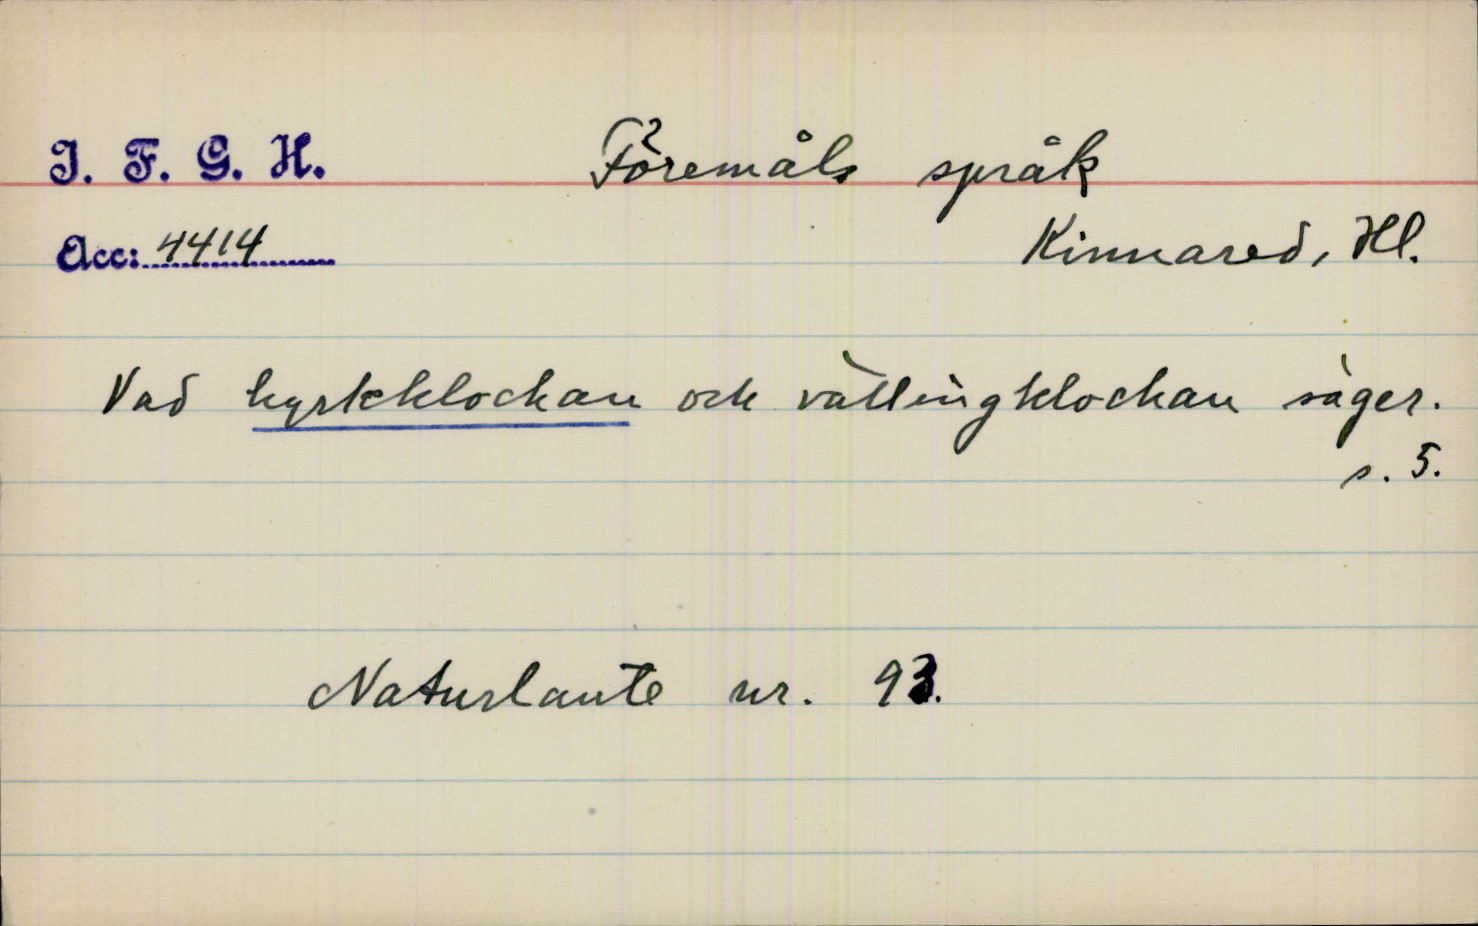 I. F. G. H.
Föremåls språk
Acc: 4414
Kinnared, Hl.
Vad kyrkklockan och vällingklockan säger.
s. 5.
Naturlaute nr. 93.